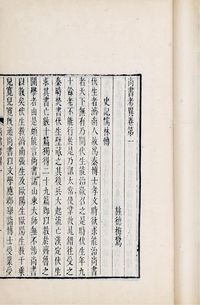 尚書考異卷第一
旌德梅鷟
史記儒林傳
伏生者濟南人故爲秦博士孝文時欲求能治尚書
者天下無有乃聞伏生能治欲召之是時伏生年九
十餘老不能行於是乃詔太常使掌故鼂錯往受之
秦時焚書伏生壁藏之其後兵大起流亡漢定伏生
求其書亡數十篇獨得二十九篇即以教於齊魯之
間學者由是頗能言尚書諸山東大師無不涉尚書
以教矣伏生教濟南張生及歐陽生歐陽生教千乘
兒寬兒寬既通尚書以文學應郡舉詣博士受業受